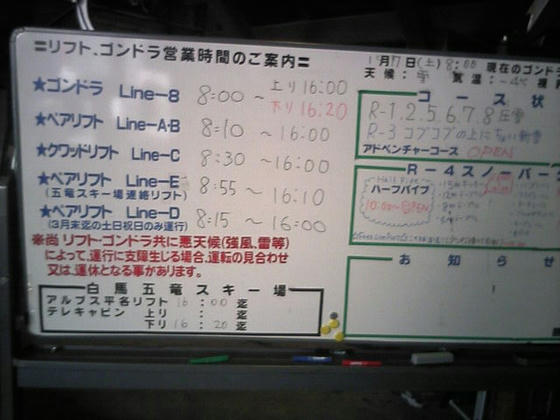 ＝リフト、ゴンドラ営業時間のご案内＝
★ゴンドラ Line-8 8:00 ～ 上り16:00
下り16:20
★ペアリフト Line-A・B 8:10 ～ 16:00
★クワッドリフト Line-C 8:30 ～ 16:00
★ペアリフト Line-E 8:55 ～ 16:10
(五竜スキー場連絡リフト)
★ペアリフト Line-D 8:15 ～ 16:00
(3月末迄の土日祝日のみ運行)
※尚 リフト・ゴンドラ共に悪天候(強風、雷等)
によって、運行に支障生じる場合、運転の見合わせ
又は、運休となる事があります。
白馬五竜スキー場
アルプス平各リフト 16:00 迄
テレキャビン 上り : 迄
下り 16:20 迄
1月17日(土) 8:00 現在のゴンド
天候:雪 気温:-4℃
コース状
R-1.2.5.6.7.8 圧雪
R-3 コブコブの上に 新雪
アドベンチャーコース OPEN
R-4スノー
ハーフパイプ
10:00～OPEN
お知らせ